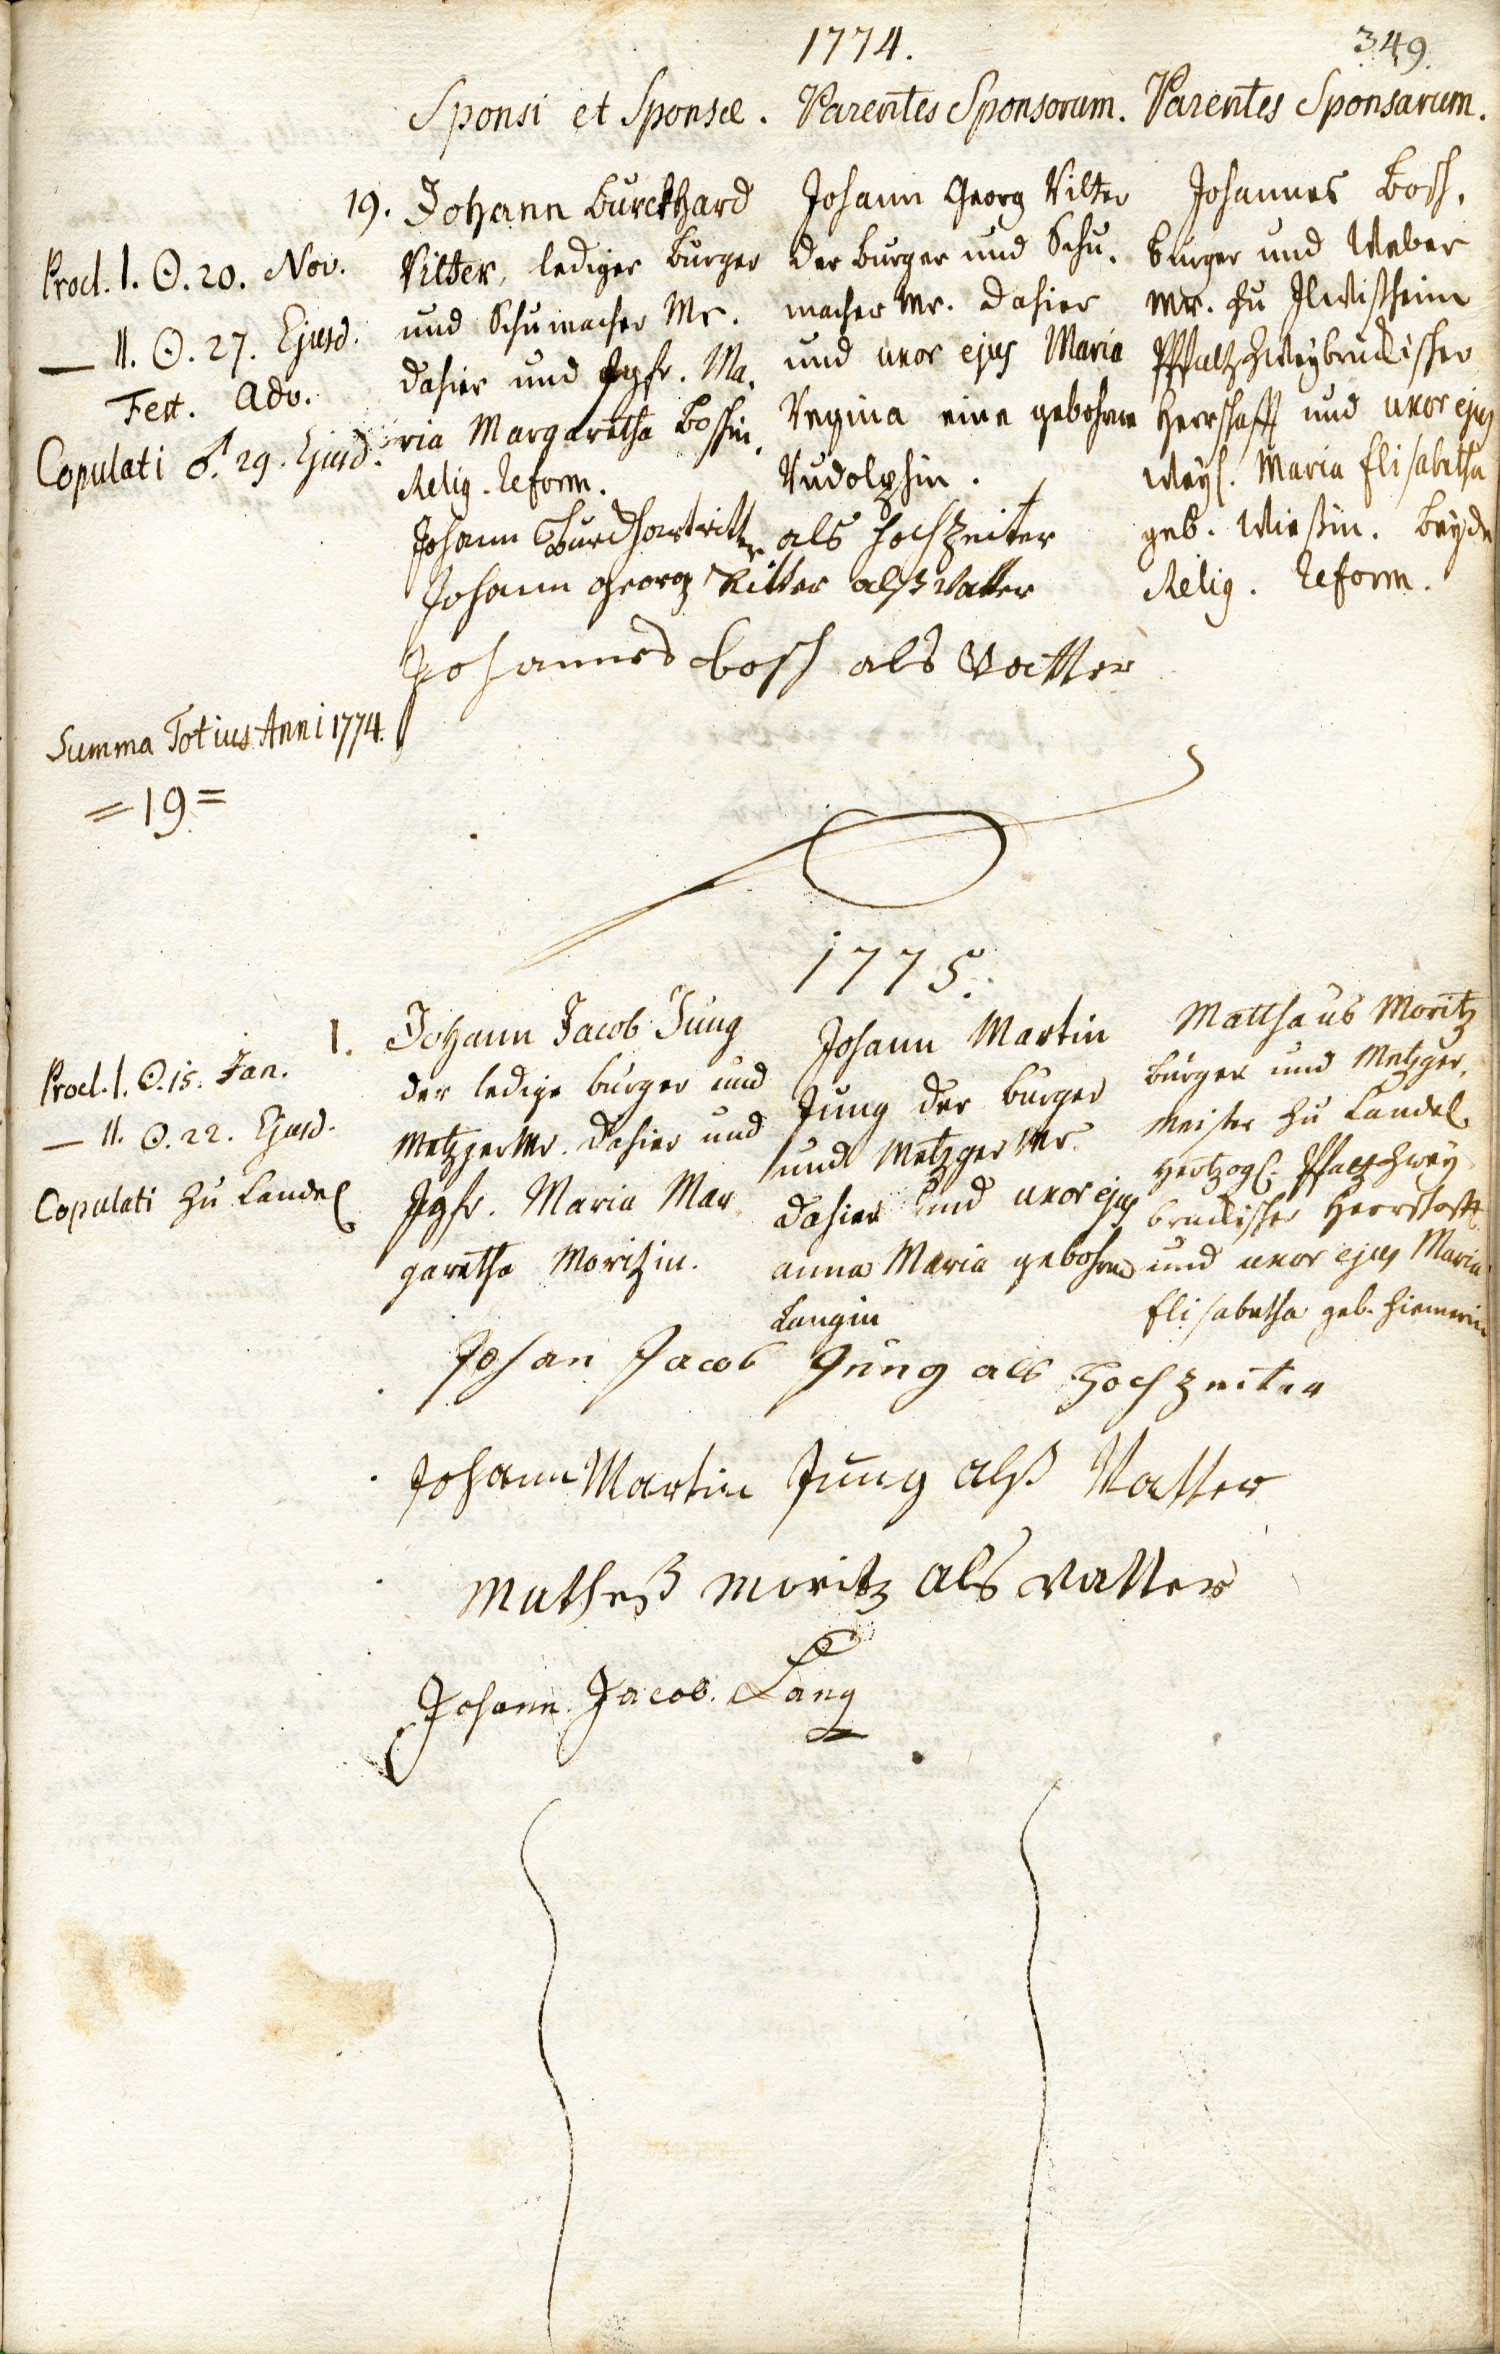 1774.
349.
Sponsi et Sponsæ. Parentes Sponsorum. Parentes Sponsarum.
19. Johann Burckhard
Ritter, lediger Burger
und Schumacher Mr.
dahier und Jgfr. Ma,
ria Margaretha Boschin,
Relig. Reform.
Procl. I. ☉. 20. Nov.
— II. ☉. 27. Ejusd.
Fest. Adv.
Copulati ♂. 29. Ejusd.
Johann Georg Ritter
der Burger und Schu,
macher Mr. dahier
und uxor ejus Maria
Regina eine gebohrne
Rudolphin.
Johannes Bosch,
Burger und Weber
Mr. zu Ilwißheim
Pfaltz Zweybruckischer
Herrschafft und uxor ejus
weyl. Maria Elisabetha
geb. Wießin. Beyde
Relig. Reform.
Johann Burchart ritter als Hochzeiter
Johann Georg Ritter alß Vatter
Johannes bosch als Vatter
Summa Totius Anni 1774.
= 19 =
1775.
1. Johann Jacob Jung
der ledige burger und
Metzger Mr. dahier und
Jgfr. Maria Mar,
garetha Moritzin.
Procl. I. ☉. 15. Jan.
— II. ☉. 22. Ejusd.
Copulati zu Candel
Johann Martin
Jung der burger
und Metzger Mr.
dahier und uxor ejus
anna Maria gebohrne
Langin
Matthaus Moritz
burger und Metzger,
Meister zu Candel
Hertzogl. Pfaltz Zwey
bruckischer Herrschafft
und uxor ejus Maria
Elisabetha geb.
Johan Jacob Jung als Hochzeiter
Johann Martin Jung alß Vatter
Matheß Moritz als Vatter
Johann Jacob Lang